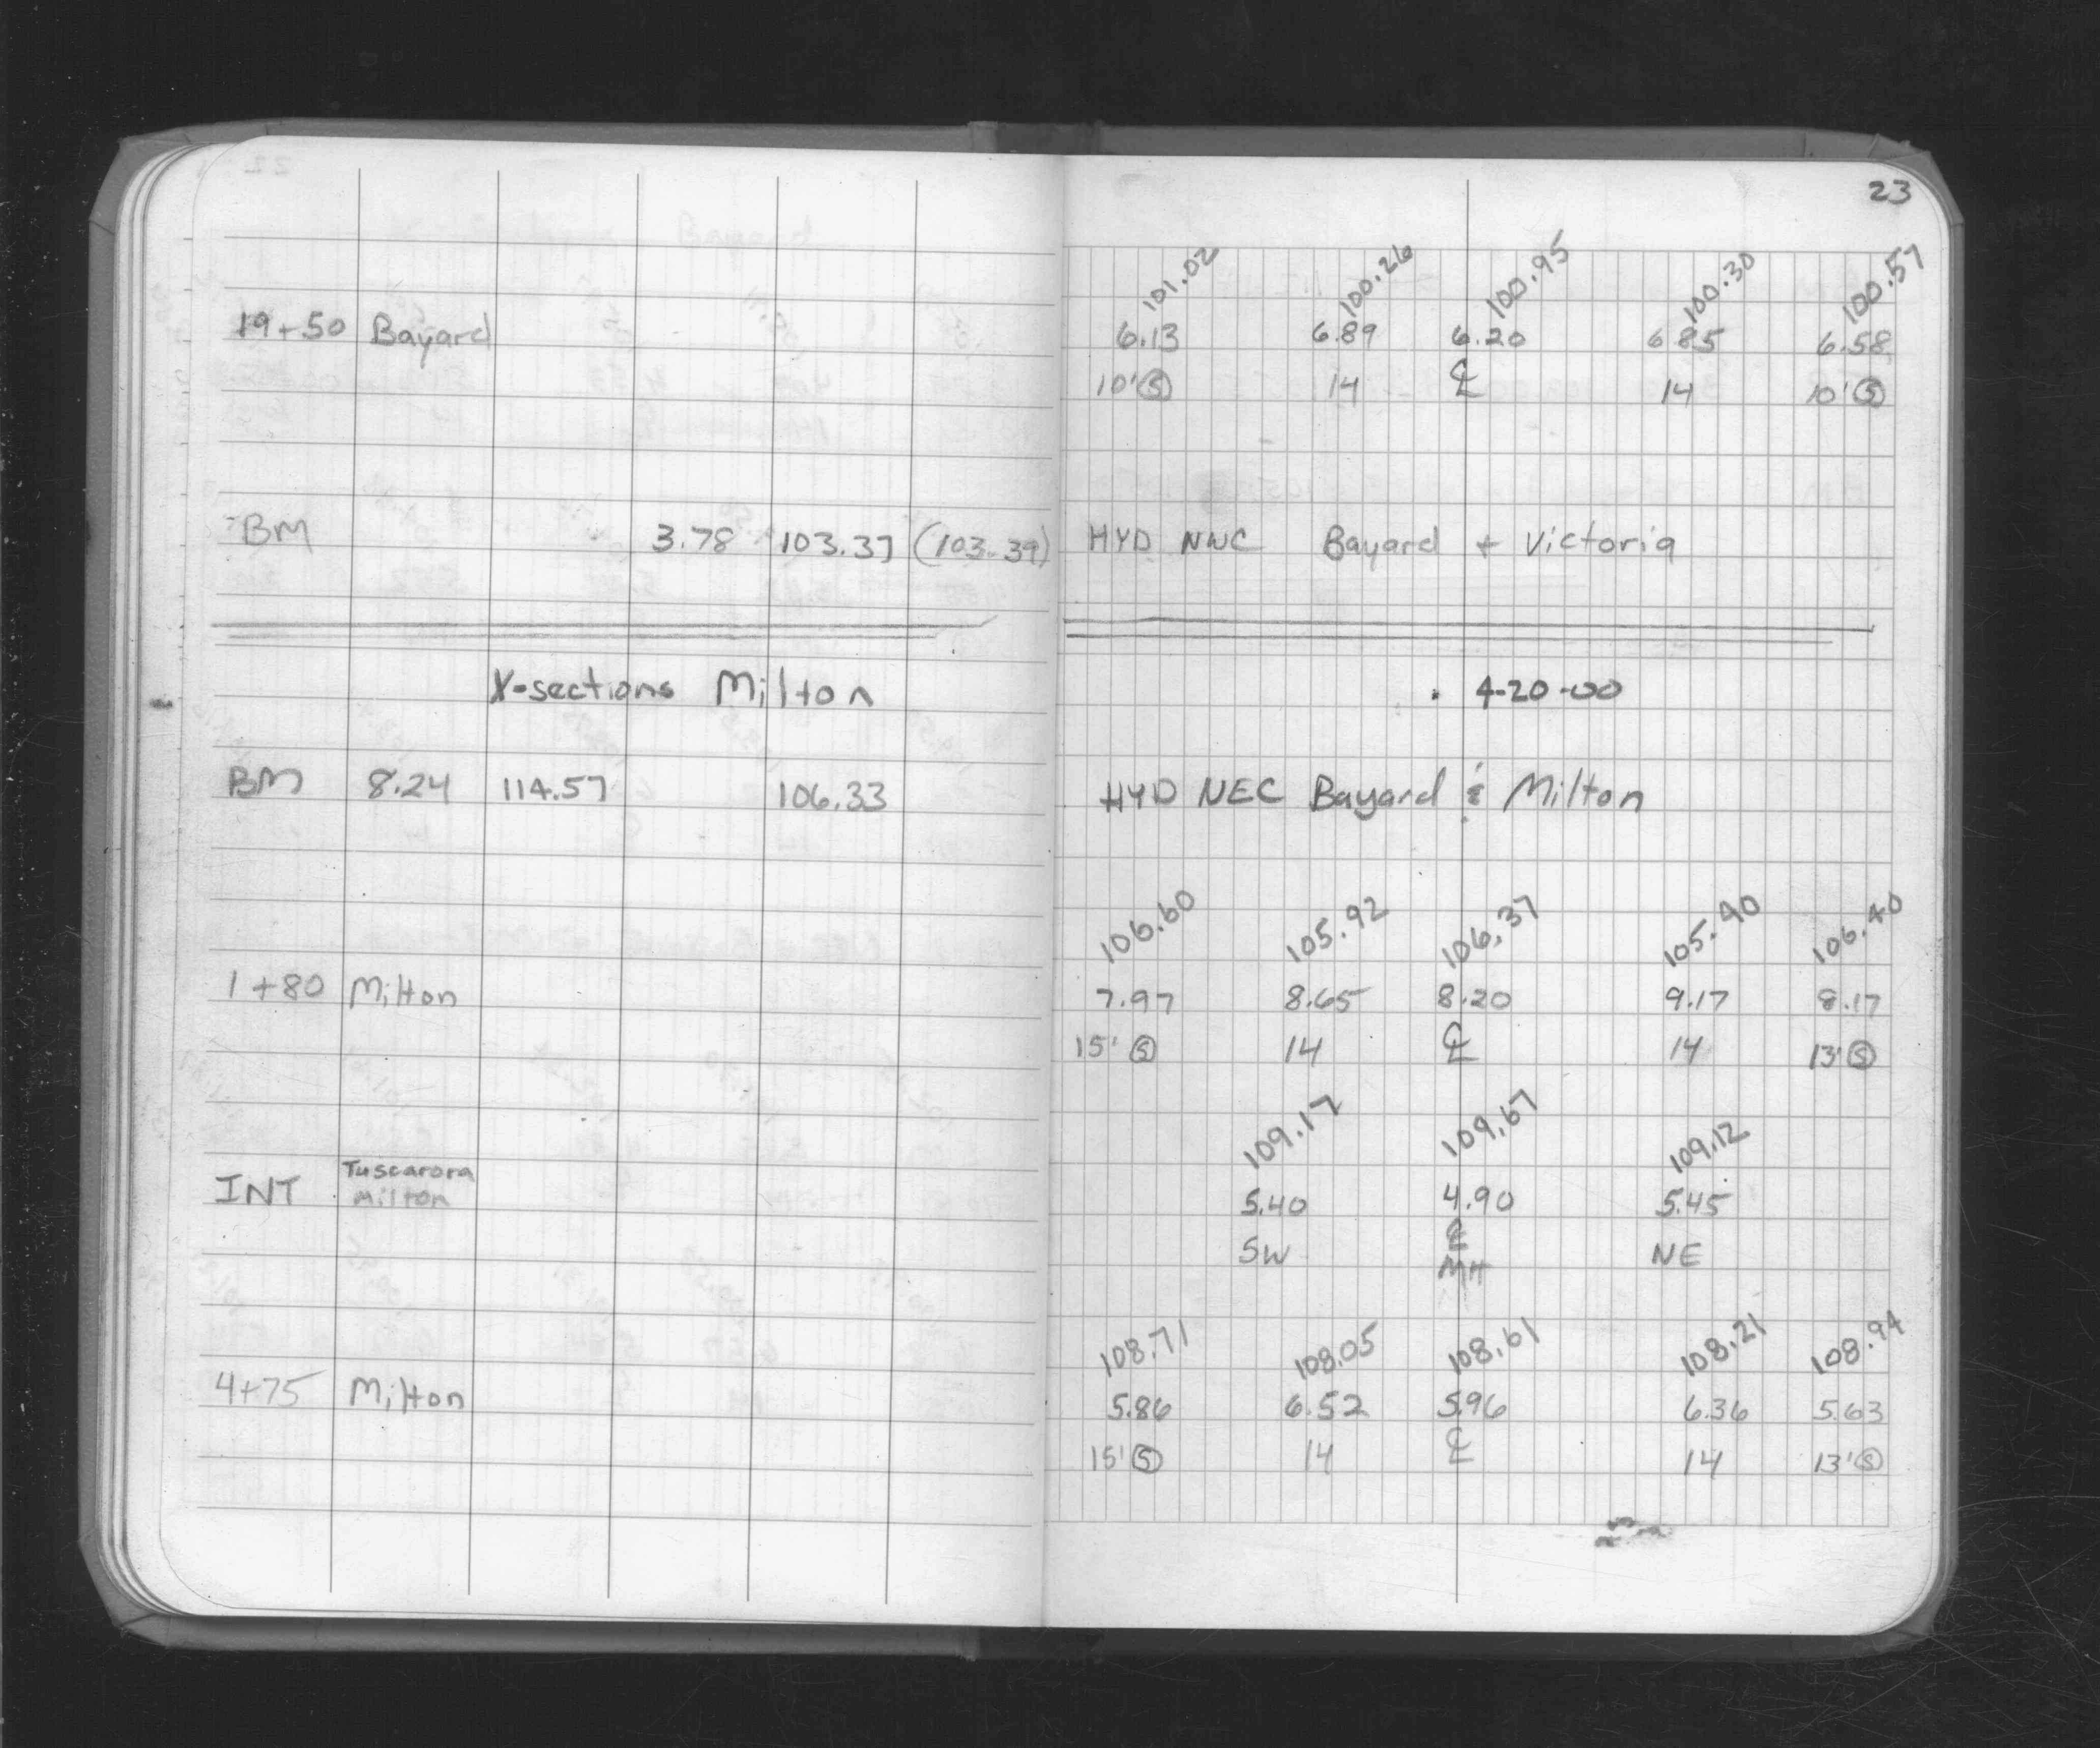 23
101.02 100.26 100.95 100.30 100.57
19+50 Bayard 6.13 6.89 6.20 6.85 6.58
10' Ⓢ 14 ℄ 14 10' Ⓢ
BM 3.78 103.37 (103.39) HYD NWC Bayard + Victoria
X-sections Milton 4-20-00
BM 8.24 114.57 106.33 HYD NEC Bayard & Milton
106.60 105.92 106.37 105.40 106.40
1+80 Milton 7.97 8.65 8.20 9.17 8.17
15' Ⓢ 14 ℄ 14 13' Ⓢ
109.17 109.67 109.12
INT Tuscarora
Milton 5.40 4.90 5.45
SW ℄ NE
MH
108.71 108.05 108.61 108.21 108.94
4+75 Milton 5.86 6.52 5.96 6.36 5.63
15' Ⓢ 14 ℄ 14 13' Ⓢ